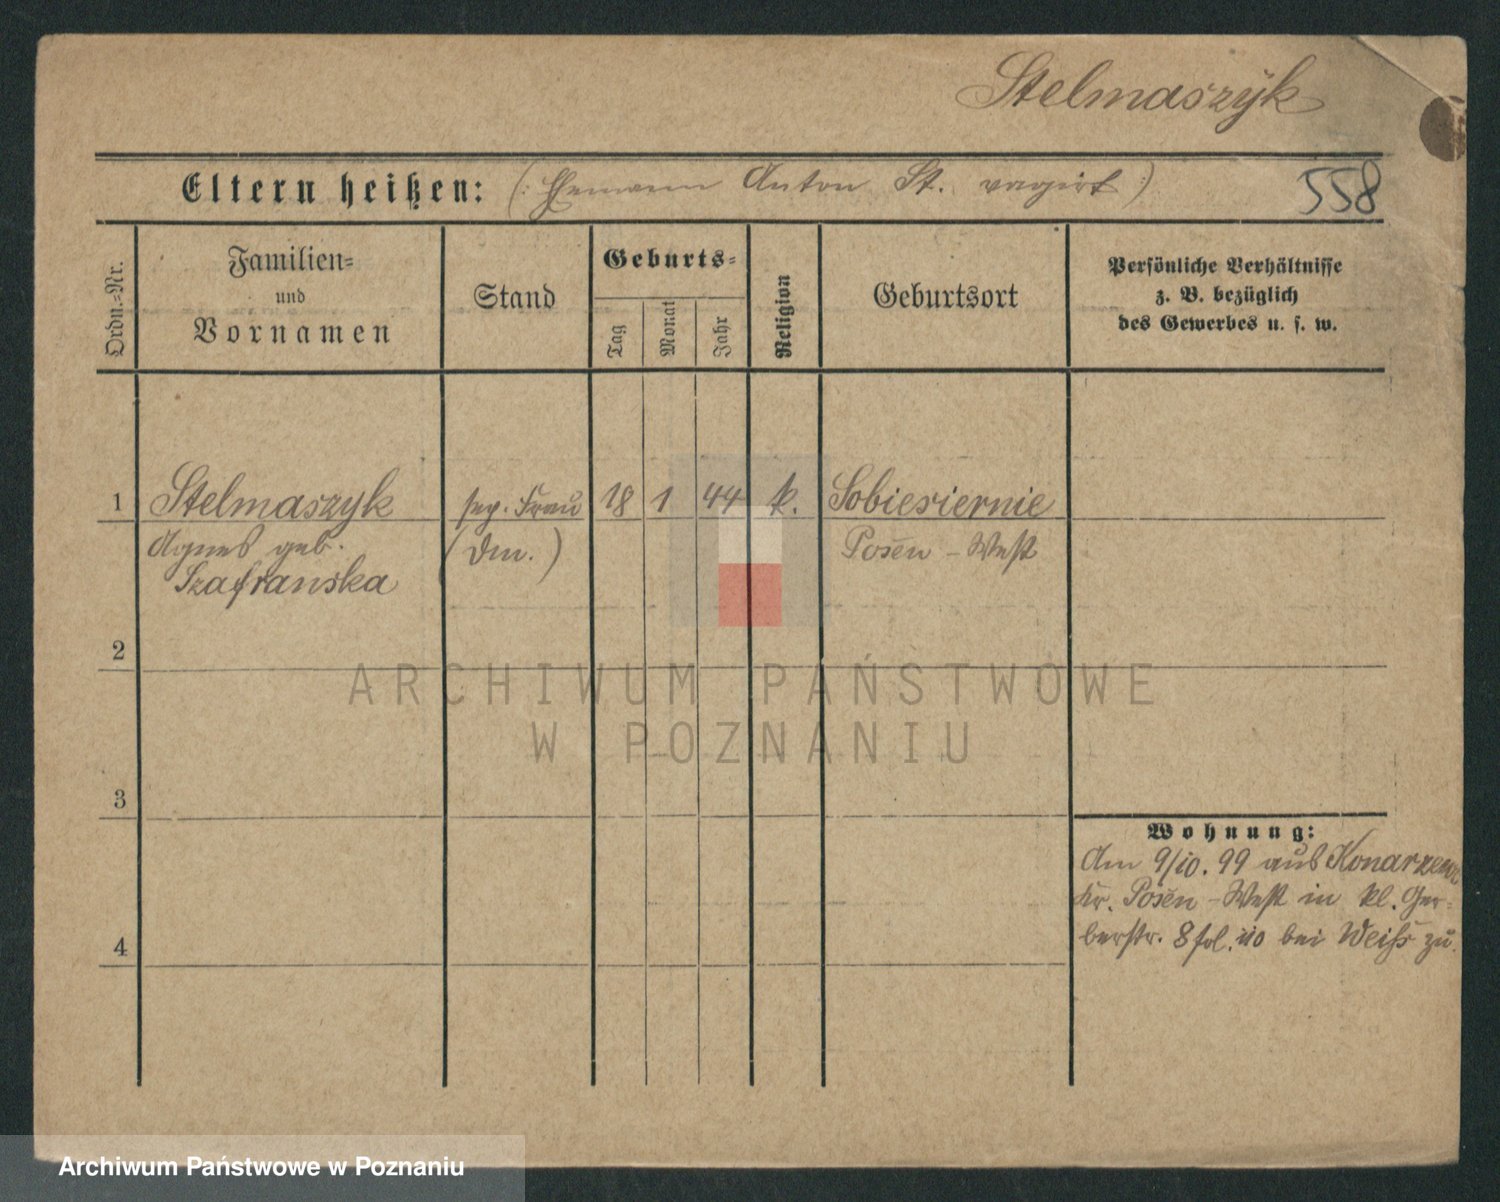 Stelmaszyk
Eltern heißen: (: Ehemann Anton St. vagirt )
558
Ordn.=Nr.
Familien=
und
Vornamen
Stand
Geburts=
Tag
Monat
Jahr
Religion
Geburtsort
Persönliche Verhältnisse
z. B. bezüglich
des Gewerbes u. s. w.
1 Stelmaszyk sep. Frau 18 1 44 k. Sobiesiernie
Agnes geb. (Dm.) Posen - West
Szafranska
2
3
4
Wohnung:
Am 9/10. 99 aus Konarzewo
Kr. Posen - West in kl. Ger=
berstr. 8 bei Weiß zu.
ARCHIWUM PAŃSTWOWE
W POZNANIU
Archiwum Państwowe w Poznaniu